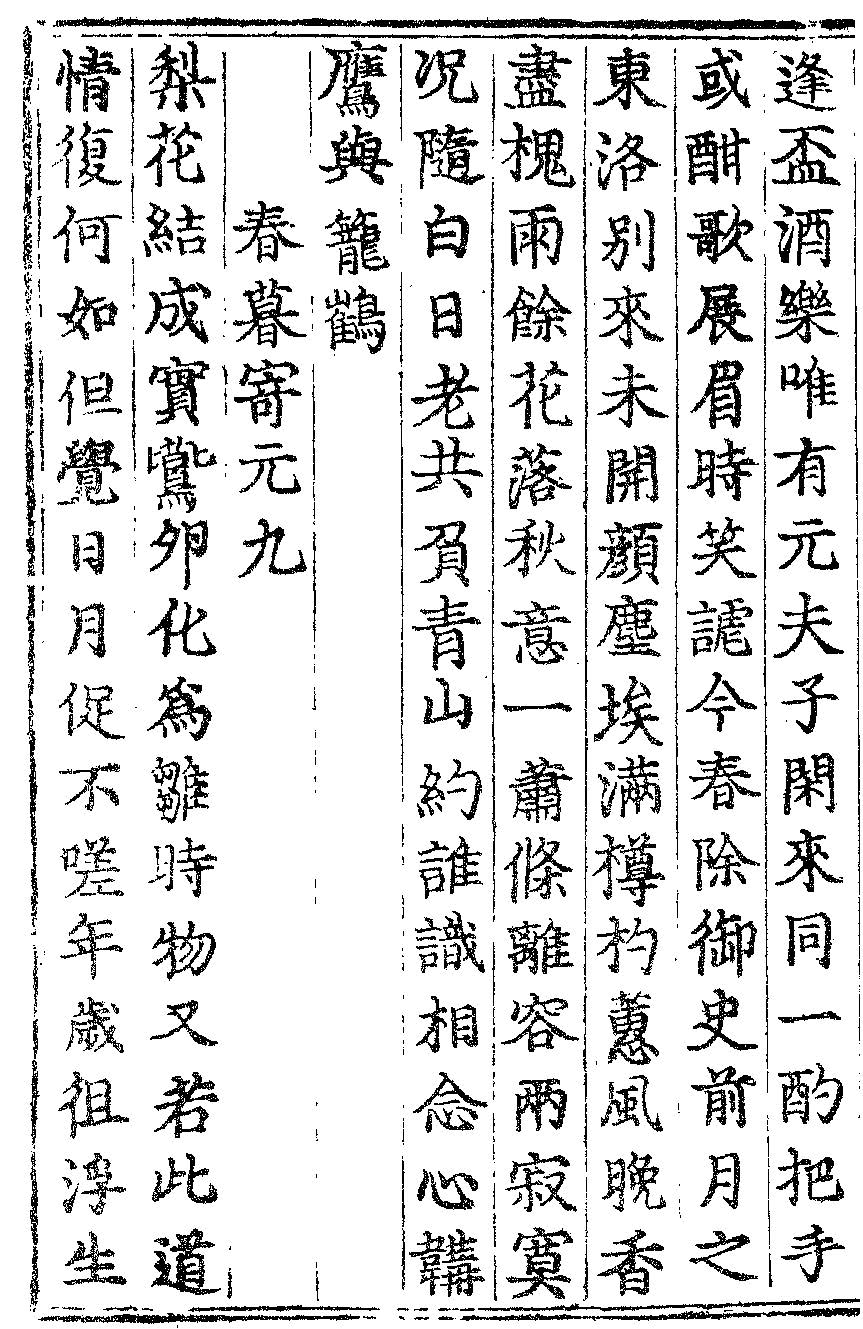 逢盃酒樂唯有元夫子閑來同一酌把手
或酣歌展眉時笑謔今春除御史前月之
東洛别來未開顔塵埃滿樽杓蕙風晩香
盡槐雨餘花落秋意一蕭條離容兩寂寞
况隨白日老共負青山約誰識相念心韝
鷹與籠鶴
春暮寄元九
梨花結成實鷰卵化爲雛時物又若此道
情復何如但覺日月促不嗟年歲徂浮生